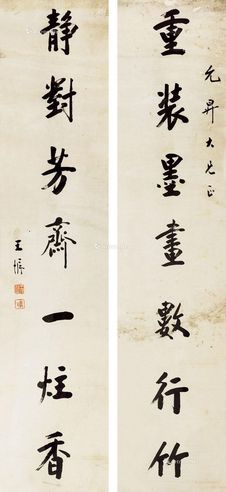 允昇大兄正
重裝墨畫數行竹
靜對芳齋一炷香